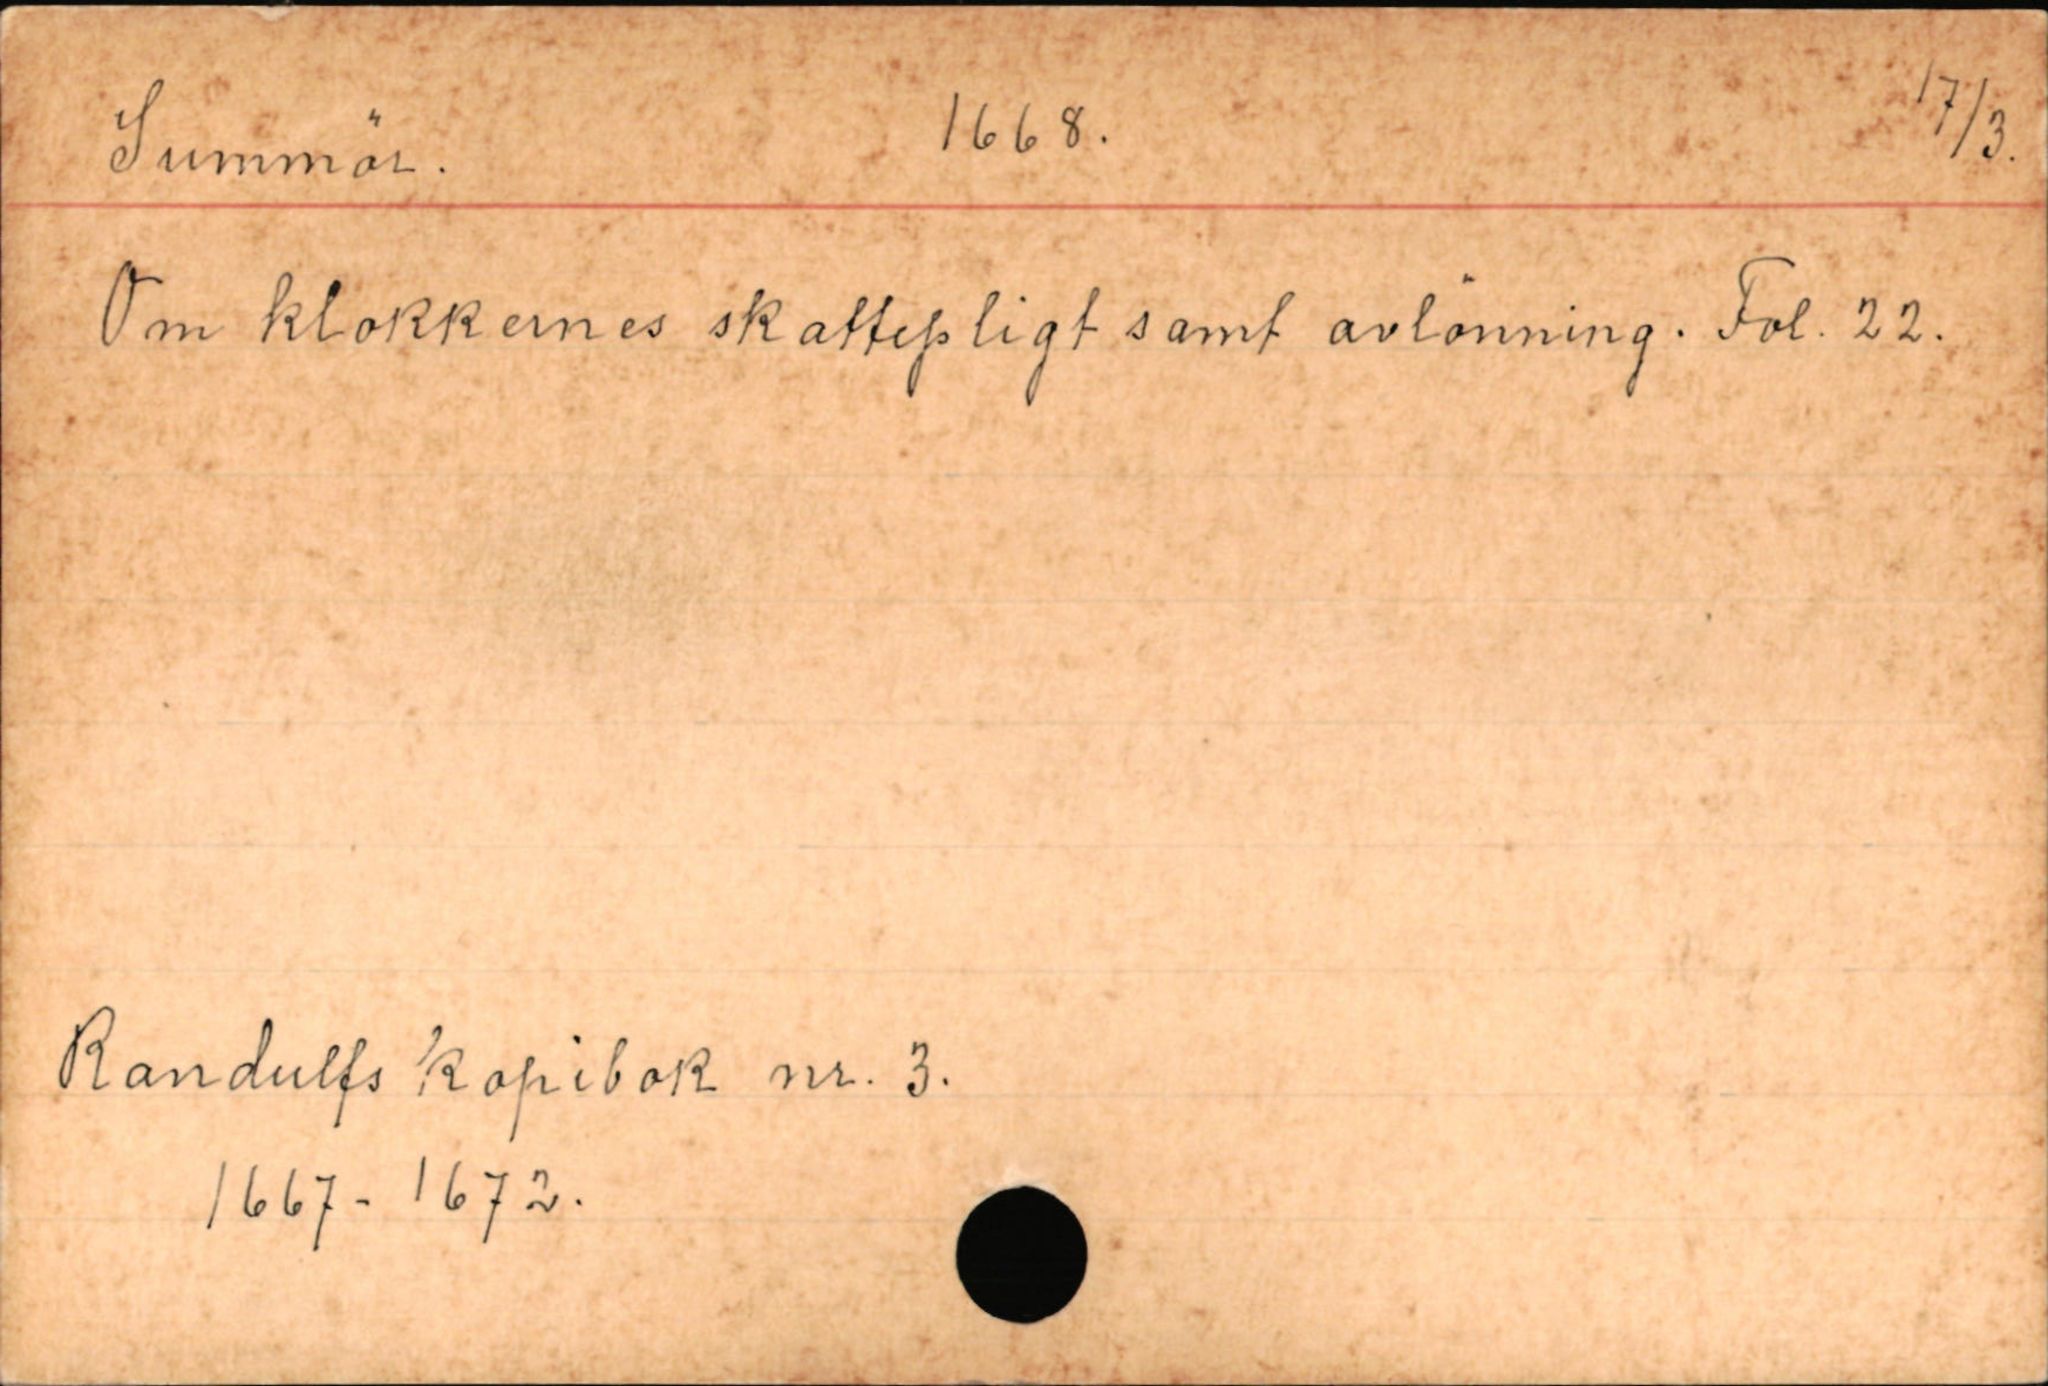 Summör. 1668. 17/3.
Om klokkernes skattepligt samt avlönning. Fol. 22.
Randulfs kopibok nr. 3.
1667-1672.